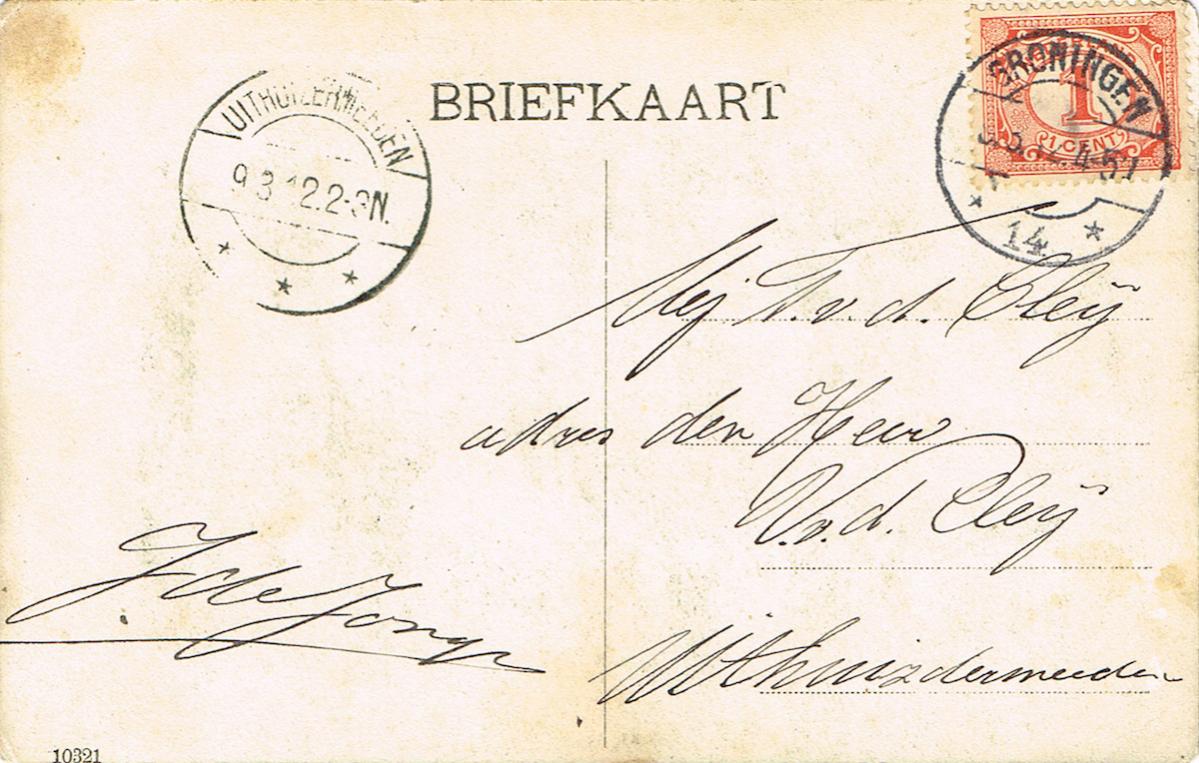 BRIEFKAART
UITHUIZERMEEDEN
9.3.12.2-3N.
GRONINGEN
4-5
14
1
1 CENT
Mej T. v. d. Cleij
adres den Heer
V. v. d. Cleij
Uithuizdermeeden
J de Jonge
10321